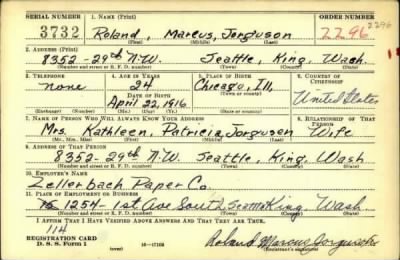 SERIAL NUMBER 1. NAME (Print) ORDER NUMBER
3732 Roland, Marcus, Jorguson 2296 2296
(First) (Middle) (Last)
2. ADDRESS (Print)
8352-29th N.W. Seattle, King, Wash.
(Number and street or R. F. D. number) (Town) (County) (State)
3. TELEPHONE 4. AGE IN YEARS 5. PLACE OF BIRTH 6. COUNTRY OF CITIZENSHIP
none 24 Chicago, Ill,
DATE OF BIRTH (Town or county)
April 22, 1916 United States
(Mo.) (Day) (Yr.) (State or country)
7. NAME OF PERSON WHO WILL ALWAYS KNOW YOUR ADDRESS 8. RELATIONSHIP OF THAT PERSON
Mrs. Kathleen, Patricia, Jorguson Wife
(Mr., Mrs., Miss) (First) (Middle) (Last)
9. ADDRESS OF THAT PERSON
8352-29th N.W. Seattle, King, Wash
(Number and street or R. F. D. number) (Town) (County) (State)
10. EMPLOYER'S NAME
Zellerbach Paper Co.
11. PLACE OF EMPLOYMENT OR BUSINESS
1254-1st Ave South, Seattle King Wash
(Number and street or R. F. D. number) (Town) (County) (State)
I AFFIRM THAT I HAVE VERIFIED ABOVE ANSWERS AND THAT THEY ARE TRUE.
114
REGISTRATION CARD
D. S. S. Form 1 (over) 16-17105 Roland Marcus Jorguson
(Registrant's signature)